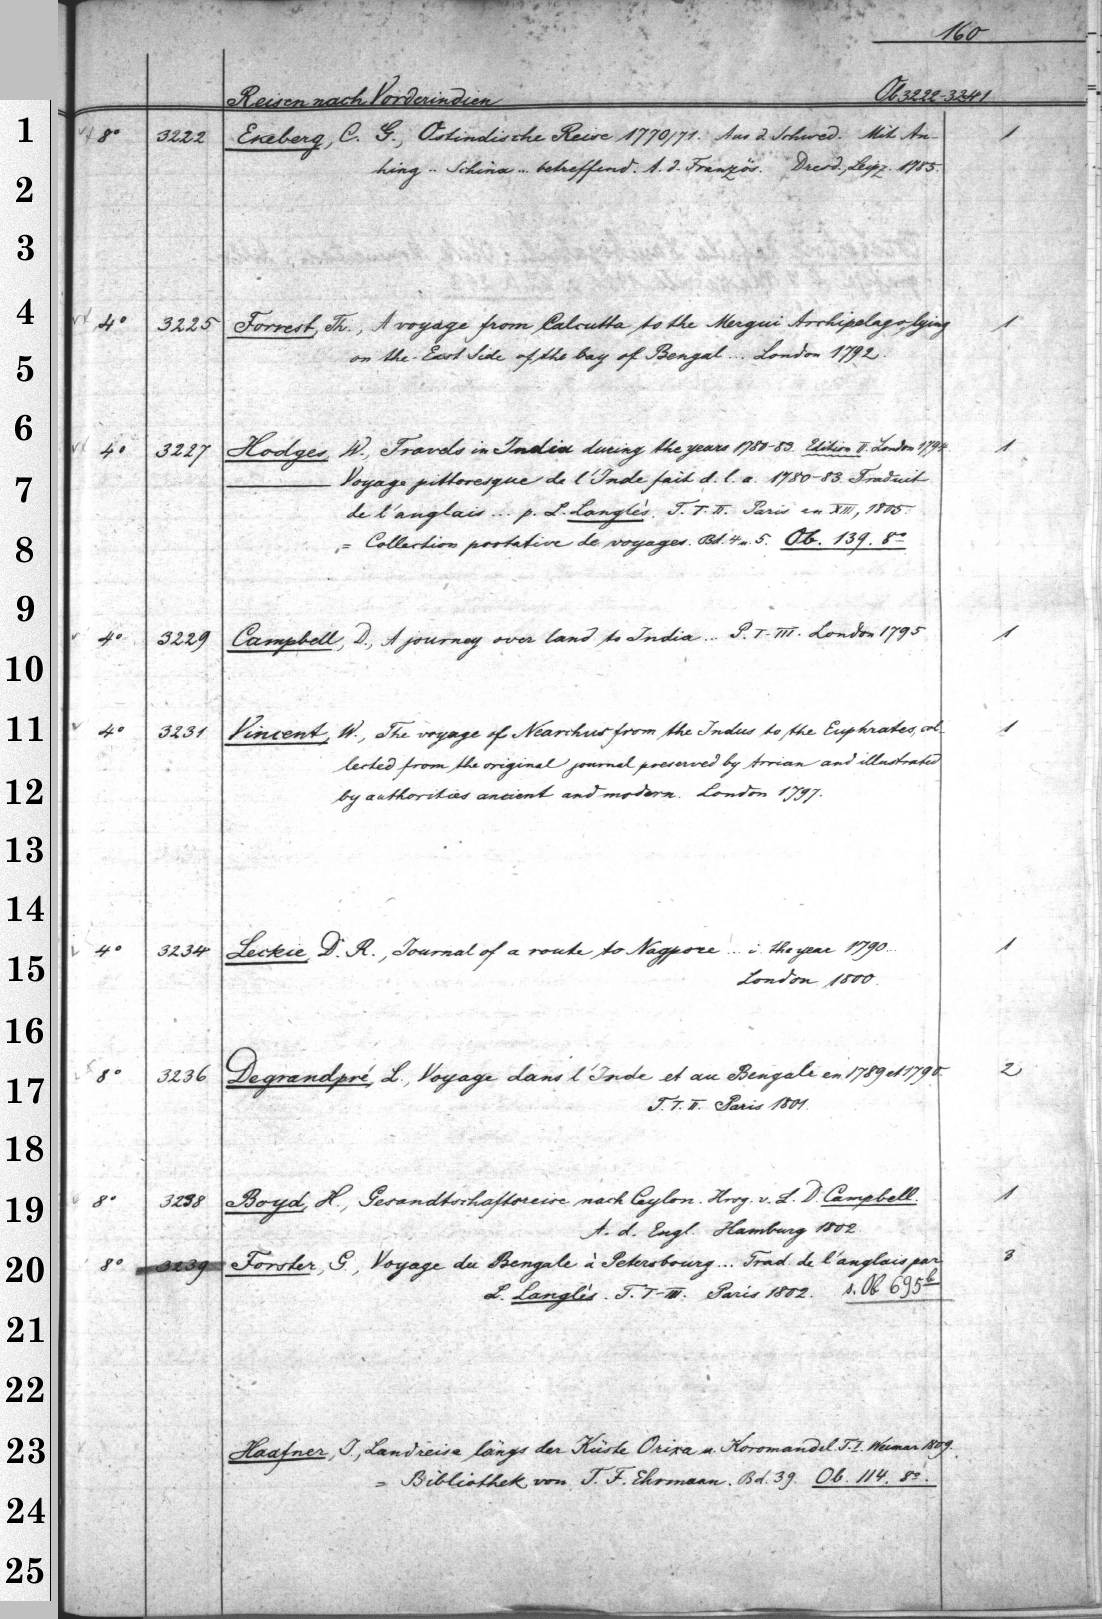 160
Reisen nach Vorderindien Ob 3222-3241
1 8° 3222 Ekeberg, C. G., Ostindische Reise 1770/71. Aus d. Schwed. Mit An- 1
2 hing .. Schina ... betreffend. A. d. Französ. Dresd., Leipz. 1785.
3
4 4° 3225 Forrest, Th., A voyage from Calcutta to the Mergui Archipelago, lying 1
5 on the East Side of the bay of Bengal ... London 1792.
6 4° 3227 Hodges, W., Travels in India during the years 1780-83. Edition II. London 1794 1
7 Voyage pittoresque de l'Inde fait d. l. a. 1780-83. Traduit
de l'anglais ... p. L. Langlès. T. I. II. Paris an XIII, 1805.
8 = Collection portative de voyages. Bd. 4 u. 5. Ob. 139. 8°
9 4° 3229 Campbell, D., A journey over land to India ... P. I-III. London 1795 1
10
11 4° 3231 Vincent, W., The voyage of Nearchus from the Indus to the Euphrates, col- 1
lected from the original journal preserved by Arrian and illustrated
12 by authorities ancient and modern. London 1797.
13
14
15 4° 3234 Leckie, D. R., Journal of a route to Nagpore ... i. the year 1790... 1
London 1800.
16
17 8° 3236 Degrandpré, L., Voyage dans l'Inde et au Bengale en 1789 et 1790. 2
T. I. II. Paris 1801.
18
19 8° 3238 Boyd, H., Gesandtschaftsreise nach Ceylon. Hrsg. v. L. D. Campbell. 1
A. d. Engl. Hamburg 1802.
20 8° 3239 Forster, G., Voyage du Bengale à Petersbourg ... Trad. de l'anglais par 3
L. Langlès. T. I-III. Paris 1802. s. Ob 695b
21
22
23 Haafner, J., Landreise längs der Küste Orixa u. Koromandel. T. I. Weimar 1809.
= Bibliothek von T. F. Ehrmann. Bd. 39. Ob. 114. 8°.
24
25